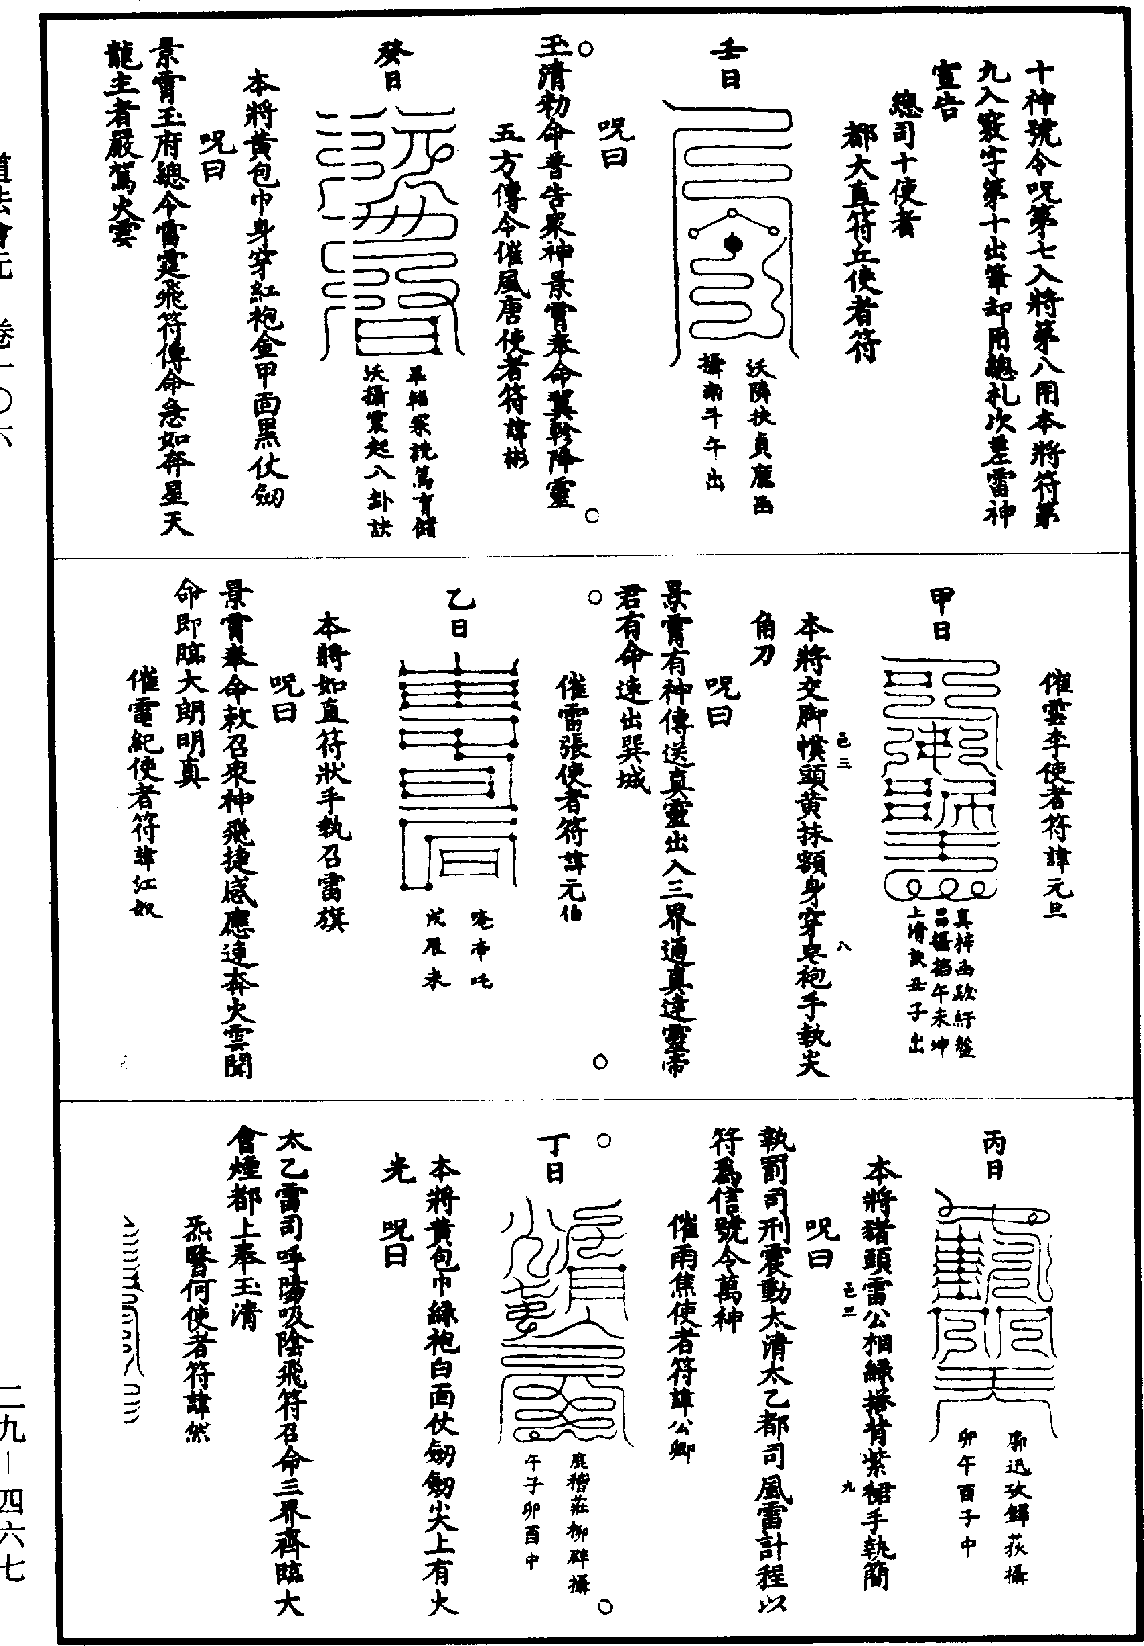 十神號令呪第七入將第八用本將符第
九入竅字第十出筆却用總札次差雷神
宣告
總司十使者
都大直符丘使者符
壬日
沃隣扶貞龐函
攝南斗午出
呪曰
玉清勅命普告衆神景霄奉命翼軫降靈
五方傳令催風唐使者符諱彬
癸日
沃攝震起八卦訣
本將黄包巾身穿紅袍金甲面黑仗劒
呪曰
景霄玉府總令雷霆飛符傳命急如奔星天
龍主者嚴駕火雲
催雲李使者符諱元旦
甲日
上清訣丑子出
本將交脚幞頭黄抹額身穿皂袍手執尖
角刀
呪曰
景霄有神傳送真靈出入三界通真達靈帝
君有命速出巽城
催雷張使者符諱元伯
乙日
唵沛吒
戌雁來
本將如直符狀手執召雷旗
呪曰
景霄奉命敕召衆神飛捷感應速奔火雲聞
命即臨大朗明真
催電紀使者符諱江奴
丙日
卯午酉子中
本將猪頭雷公相緑搭背紫裙手執簡
呪曰
執罰司刑震動太清太乙都司風雷計程以
符爲信號令萬神
催雨焦使者符諱公卿
丁日
午子卯酉中
本將黄包巾緑袍白面仗劒劒尖上有火
光
呪曰
太乙雷司呼陽吸陰飛符召命三界齊臨大
會煙都上奉玉清
炁瞖何使者符諱然
道法會元 卷一〇六
二九－四六七